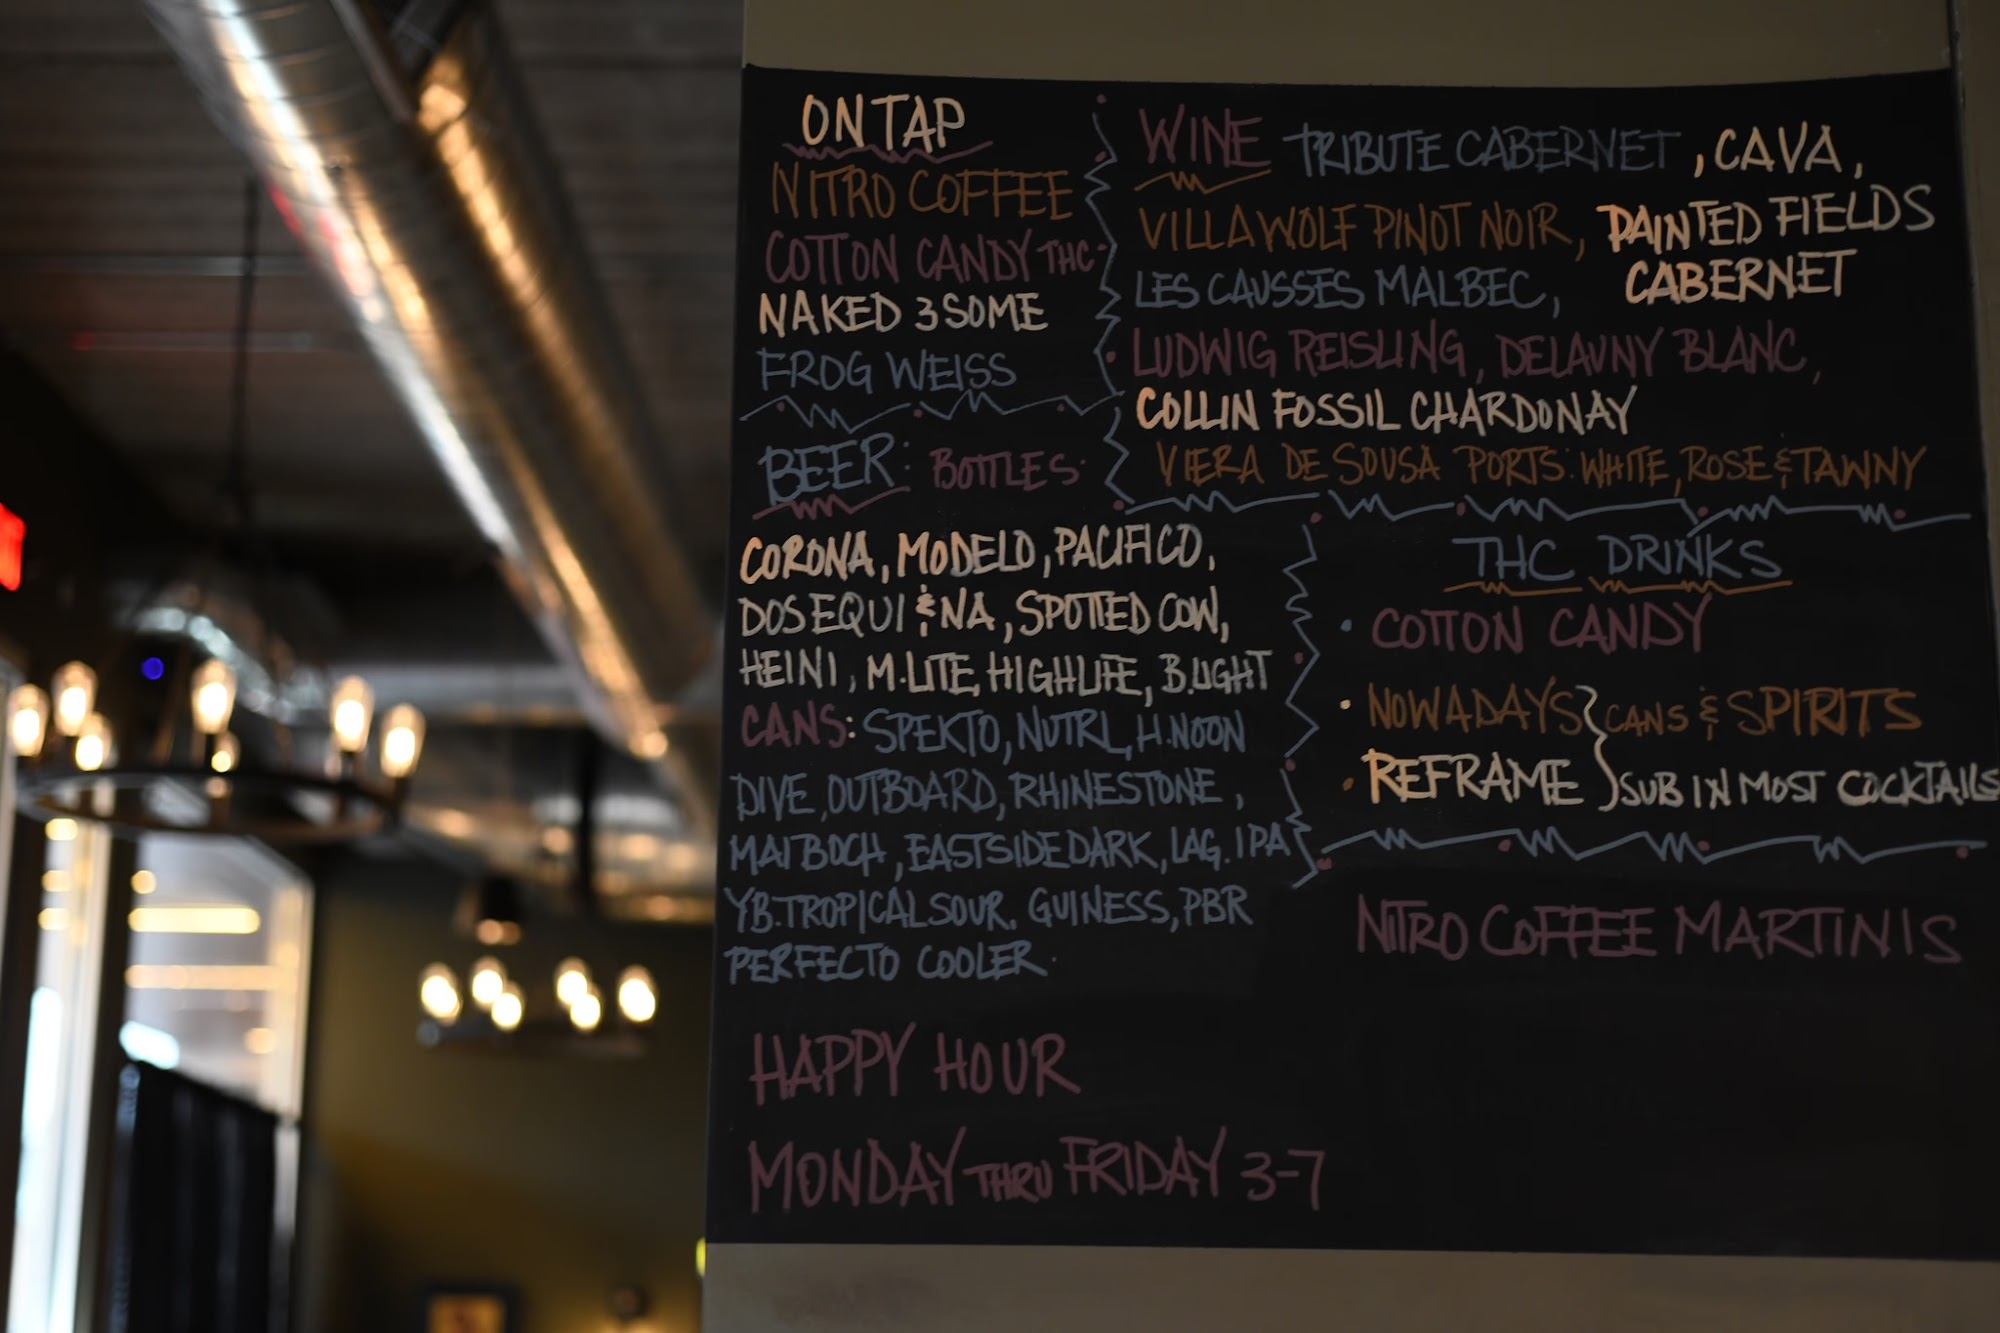 ON TAP
NITRO COFFEE
COTTON CANDY THC
NAKED 3SOME
FROG WEISS
BEER: BOTTLES:
CORONA, MODELO, PACIFICO,
DOS EQUI & NA, SPOTTED COW,
HEINI, M.LITE, HIGHLIFE, B.LIGHT
CANS: SPEKTO, NUTRL, H.NOON
DIVE, OUTBOARD, RHINESTONE,
MAIBOCH, EASTSIDE DARK, LAG. IPA
YB.TROPICAL SOUR, GUINESS, PBR
PERFECTO COOLER.
HAPPY HOUR
MONDAY THRU FRIDAY 3-7
WINE TRIBUTE CABERNET, CAVA,
VILLA WOLF PINOT NOIR, PAINTED FIELDS
LES CAUSSES MALBEC, CABERNET
LUDWIG REISLING, DELAUNY BLANC,
COLLIN FOSSIL CHARDONAY
VIERA DE SOUSA PORTS: WHITE, ROSE & TAWNY
THC DRINKS
• COTTON CANDY
• NOWADAYS } CANS & SPIRITS
• REFRAME } SUB IN MOST COCKTAILS
NITRO COFFEE MARTINIS